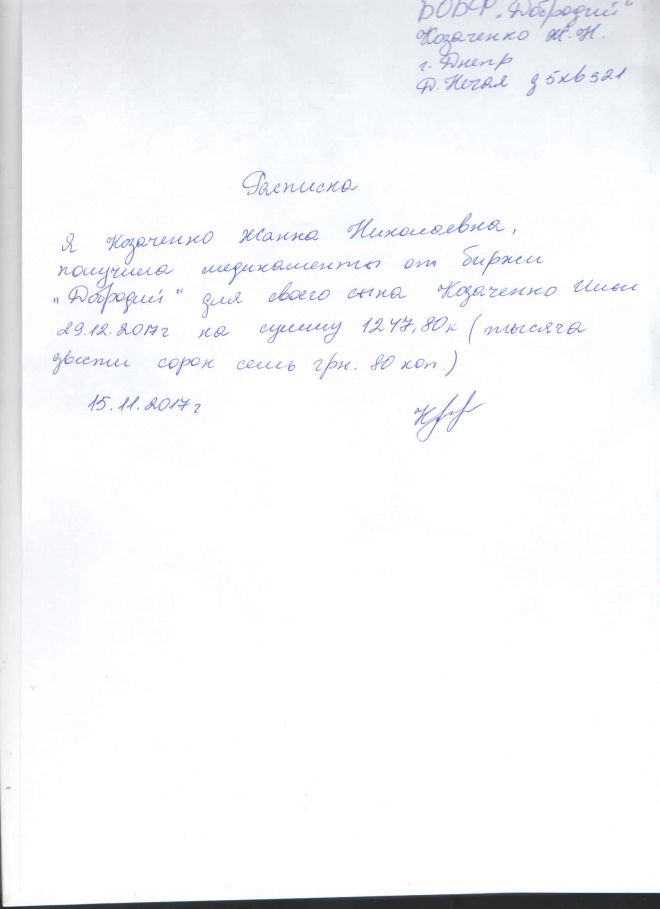 БОБФ „Добродий"
Козаченко Ж.Н.
г. Днепр
Д. Нечая д 5 кв 321
Расписка
Я Козаченко Жанна Николаевна,
получила медикаменты от биржи
„Добродий" для своего сына Козаченко Ильи
29.12.2017г на сумму 1247,80к (тысяча
двести сорок семь грн. 80 коп.)
15.11.2017г